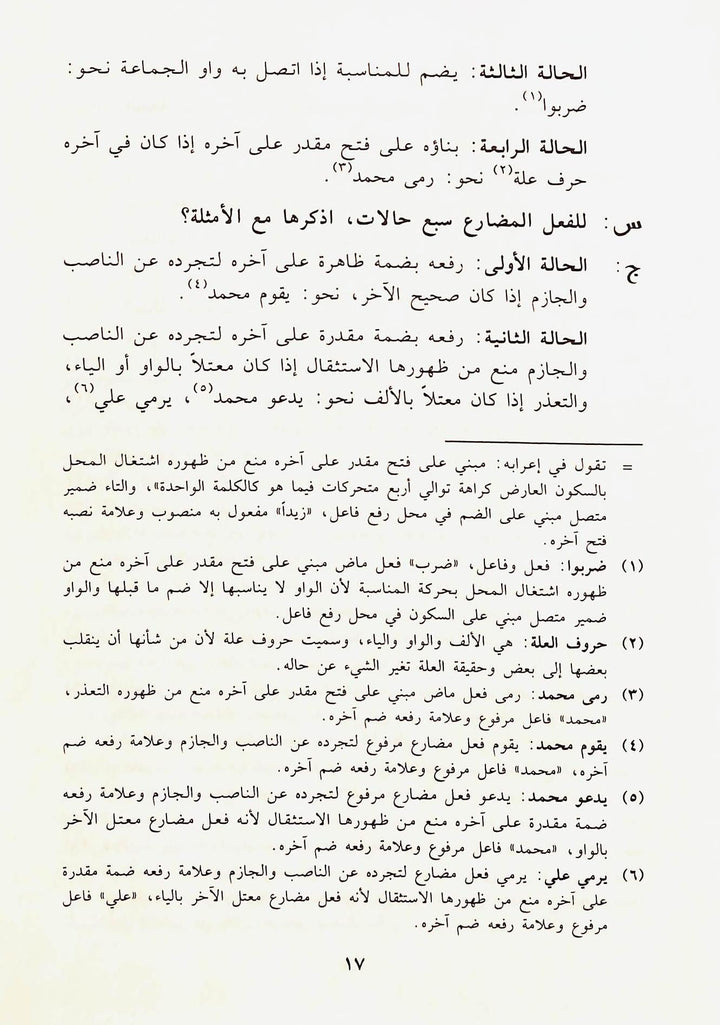 الحالة الثالثة: يضم للمناسبة إذا اتصل به واو الجماعة نحو:
ضربوا(١).
الحالة الرابعة: بناؤه على فتح مقدر على آخره إذا كان في آخره
حرف علة(٢) نحو: رمى محمد(٣).
س: للفعل المضارع سبع حالات، اذكرها مع الأمثلة؟
ج: الحالة الأولى: رفعه بضمة ظاهرة على آخره لتجرده عن الناصب
والجازم إذا كان صحيح الآخر، نحو: يقوم محمد(٤).
الحالة الثانية: رفعه بضمة مقدرة على آخره لتجرده عن الناصب
والجازم منع من ظهورها الاستثقال إذا كان معتلاً بالواو أو الياء،
والتعذر إذا كان معتلاً بالألف نحو: يدعو محمد(٥)، يرمي علي(٦)،
= تقول في إعرابه: مبني على فتح مقدر على آخره منع من ظهوره اشتغال المحل
بالسكون العارض كراهة توالي أربع متحركات فيما هو كالكلمة الواحدة»، والتاء ضمير
متصل مبني على الضم في محل رفع فاعل، «زيداً» مفعول به منصوب وعلامة نصبه
فتح آخره.
(١) ضربوا: فعل وفاعل، «ضرب» فعل ماض مبني على فتح مقدر على آخره منع من
ظهوره اشتغال المحل بحركة المناسبة لأن الواو لا يناسبها إلا ضم ما قبلها والواو
ضمير متصل مبني على السكون في محل رفع فاعل.
(٢) حروف العلة: هي الألف والواو والياء، وسميت حروف علة لأن من شأنها أن ينقلب
بعضها إلى بعض وحقيقة العلة تغير الشيء عن حاله.
(٣) رمى محمد: رمى فعل ماض مبني على فتح مقدر على آخره منع من ظهوره التعذر،
«محمد» فاعل مرفوع وعلامة رفعه ضم آخره.
(٤) يقوم محمد: يقوم فعل مضارع مرفوع لتجرده عن الناصب والجازم وعلامة رفعه ضم
آخره، «محمد» فاعل مرفوع وعلامة رفعه ضم آخره.
(٥) يدعو محمد: يدعو فعل مضارع مرفوع لتجرده عن الناصب والجازم وعلامة رفعه
ضمة مقدرة على آخره منع من ظهورها الاستثقال لأنه فعل مضارع معتل الآخر
بالواو، «محمد» فاعل مرفوع وعلامة رفعه ضم آخره.
(٦) يرمي علي: يرمي فعل مضارع لتجرده عن الناصب والجازم وعلامة رفعه ضمة مقدرة
على آخره منع من ظهورها الاستثقال لأنه فعل مضارع معتل الآخر بالياء، «علي» فاعل
مرفوع وعلامة رفعه ضم آخره.
١٧